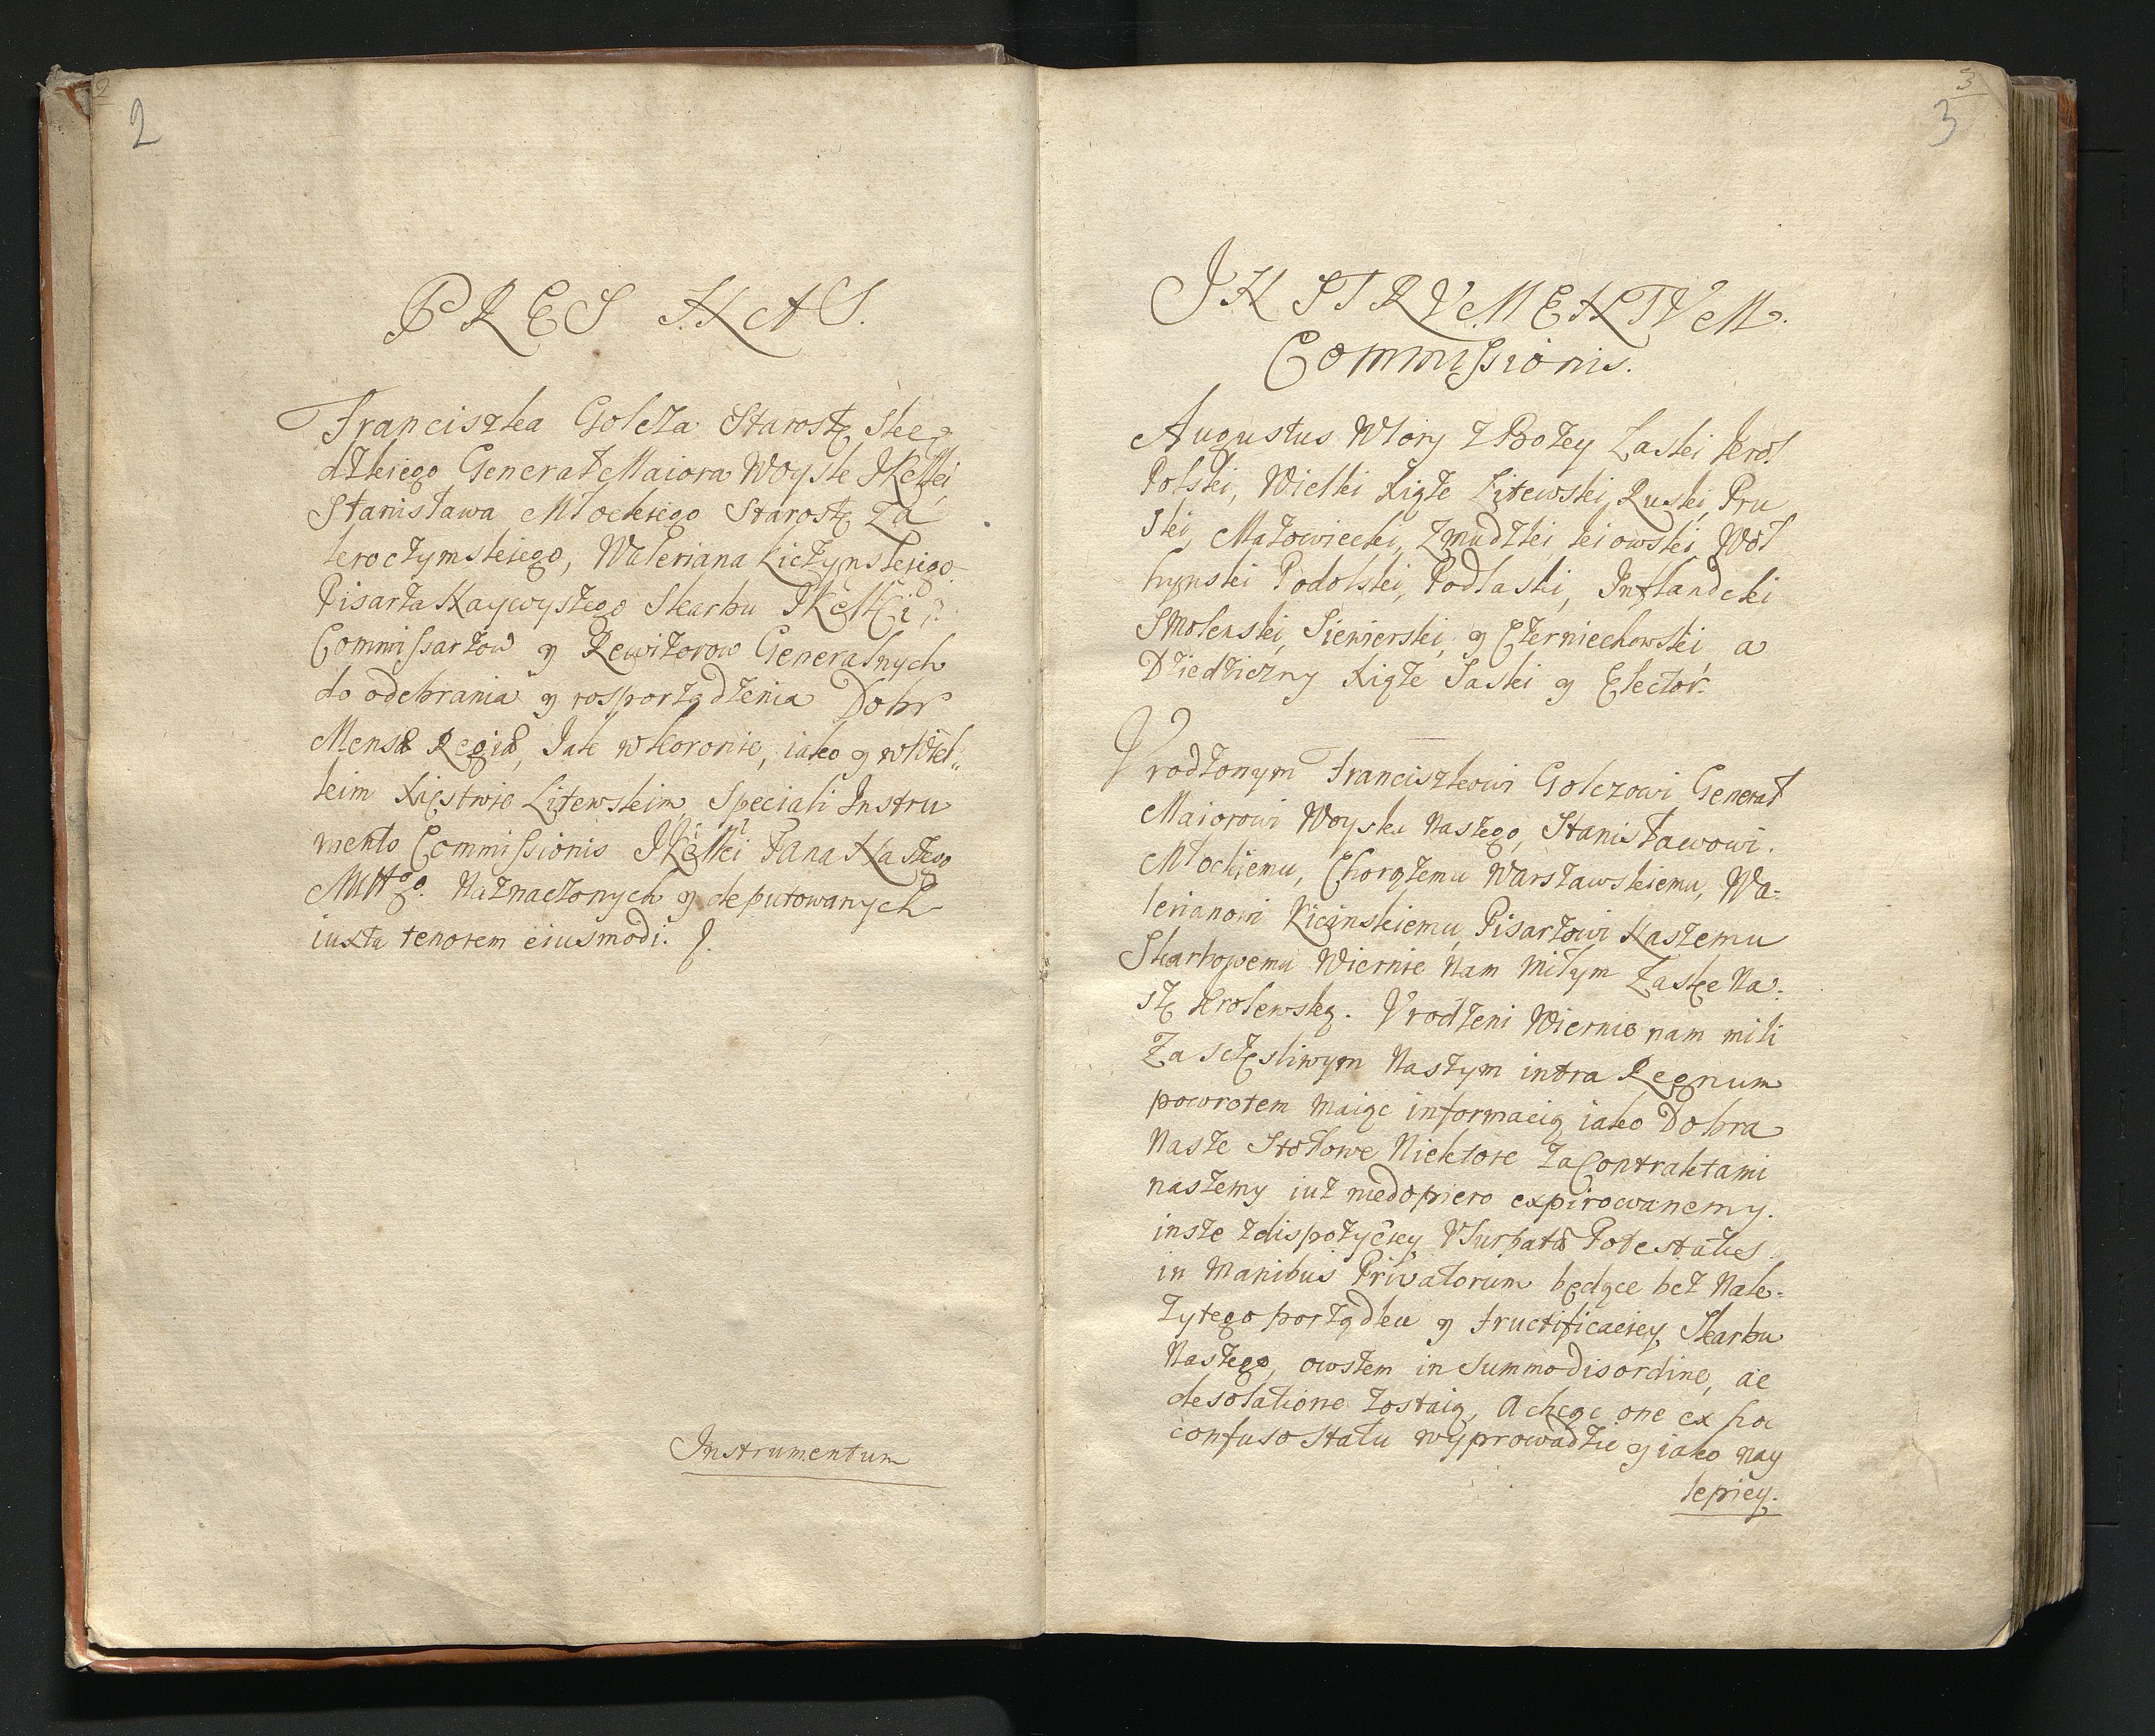 2
2
PRES NAS.
Franciszka Golcza Starostę Ste
dzkiego Generał Maiora Woysk JKMci,
Stanisława Młockiego Starostę Za
kroczymskiego, Waleriana Kiczynskiego
Pisarza Naywyszego Skarbu JKMCi,
Commissarzow y Rewizorow Generalnych
do odebrania y rosporządzenia Dobr
Mensæ Regiæ, Jak w Koronie, iako y w Wiel„
kim Xięstwie Litewskim, Speciali Instru
mento Commissionis JKMci Pana Naszego
Miłłgo. Naznaczonych y deputowanych
iuxta tenorem eiusmodi.
Instrumentum
3
3
INSTRVMENTVM.
Commissionis.
Augustus Wtory z Bozey Laski Krol
Polski, Wielki Xiąze Litewski, Ruski, Pru
ski, Mazowiecki, Zmudzki, Kiowski, Wol
hynski Podolski, Podlaski, Inflandcki
Smolenski, Siewierski, y Czerniechowski, a
Dziedziczny Xiąze Saski y Elector.
Vrodzonym Franciszkowi Golczowi Generał
Maiorowi Woyska Naszego, Stanisławowi.
Młockiemu, Chorązemu Warszawskiemu, Wa=
lerianowi Kicinskiemu, Pisarzowi Naszemu
Skarbowemu Wiernie Nam Miłym Łaskę Na=
szę Krolewską. Vrodzeni Wiernie nam mili
Za sczęsliwym Naszym intra Regnum
powrotem Maiąc informacią iako Dobra
Nasze Stołowe Niektore za Contraktami
naszemy iuz niedopiero expirowanemy.
insze z dispozyciey Vsurpatæ Potestatis
in Manibus Privatorum będące bez Nale=
zytego porządku y fructificaciey Skarbu
Naszego, owszem in Summo disordine, ac
desolatione zostaią, A chcąc one ex hoc
confuso statu wyprowadzic y iako nay
lepiey.